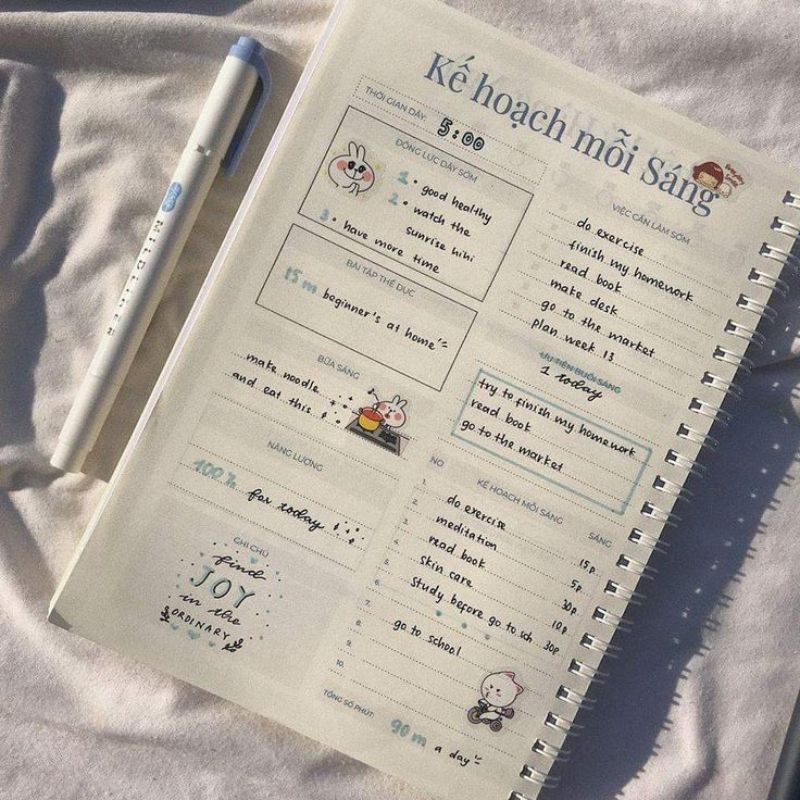 Kế hoạch mỗi Sáng
THỜI GIAN DẬY: 5:00
ĐỘNG LỰC DẬY SỚM
1. good healthy
2. watch the
sunrise hihi
3. have more time
BÀI TẬP THỂ DỤC
15 m beginner's at home
BỮA SÁNG
make noodle
and eat this
NĂNG LƯỢNG
100% for today
GHI CHÚ
find
JOY
in the
ORDINARY
VIỆC CẦN LÀM SỚM
do exercise
finish my homework
read book
make desk
go to the market
plan week 13
ƯU TIÊN BUỔI SÁNG
1 today
try to finish my homework
read book
go to the market
NO KẾ HOẠCH MỖI SÁNG SÁNG
1. do exercise 15p
2. meditation 5p
3. read book 30p
4. skin care 10p
5. study before go to sch 30p
6.
7. go to school
8.
9.
10.
TỔNG SỐ PHÚT: 90 m a day
MILDLINER